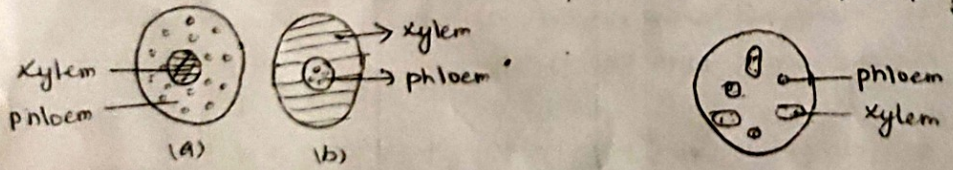 xylem
phloem
(a)
xylem
phloem
(b)
phloem
xylem